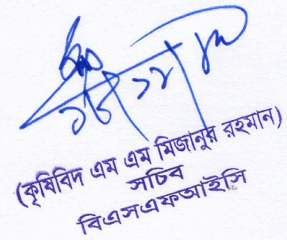 (কৃষিবিদ এম এম মিজানুর রহমান)
সচিব
বিএসএফআইসি